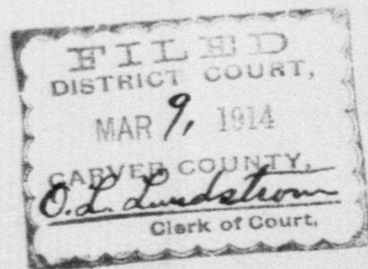 FILED
DISTRICT COURT,
MAR 9, 1914
CARVER COUNTY,
O. L. Lundstrom
Clerk of Court,